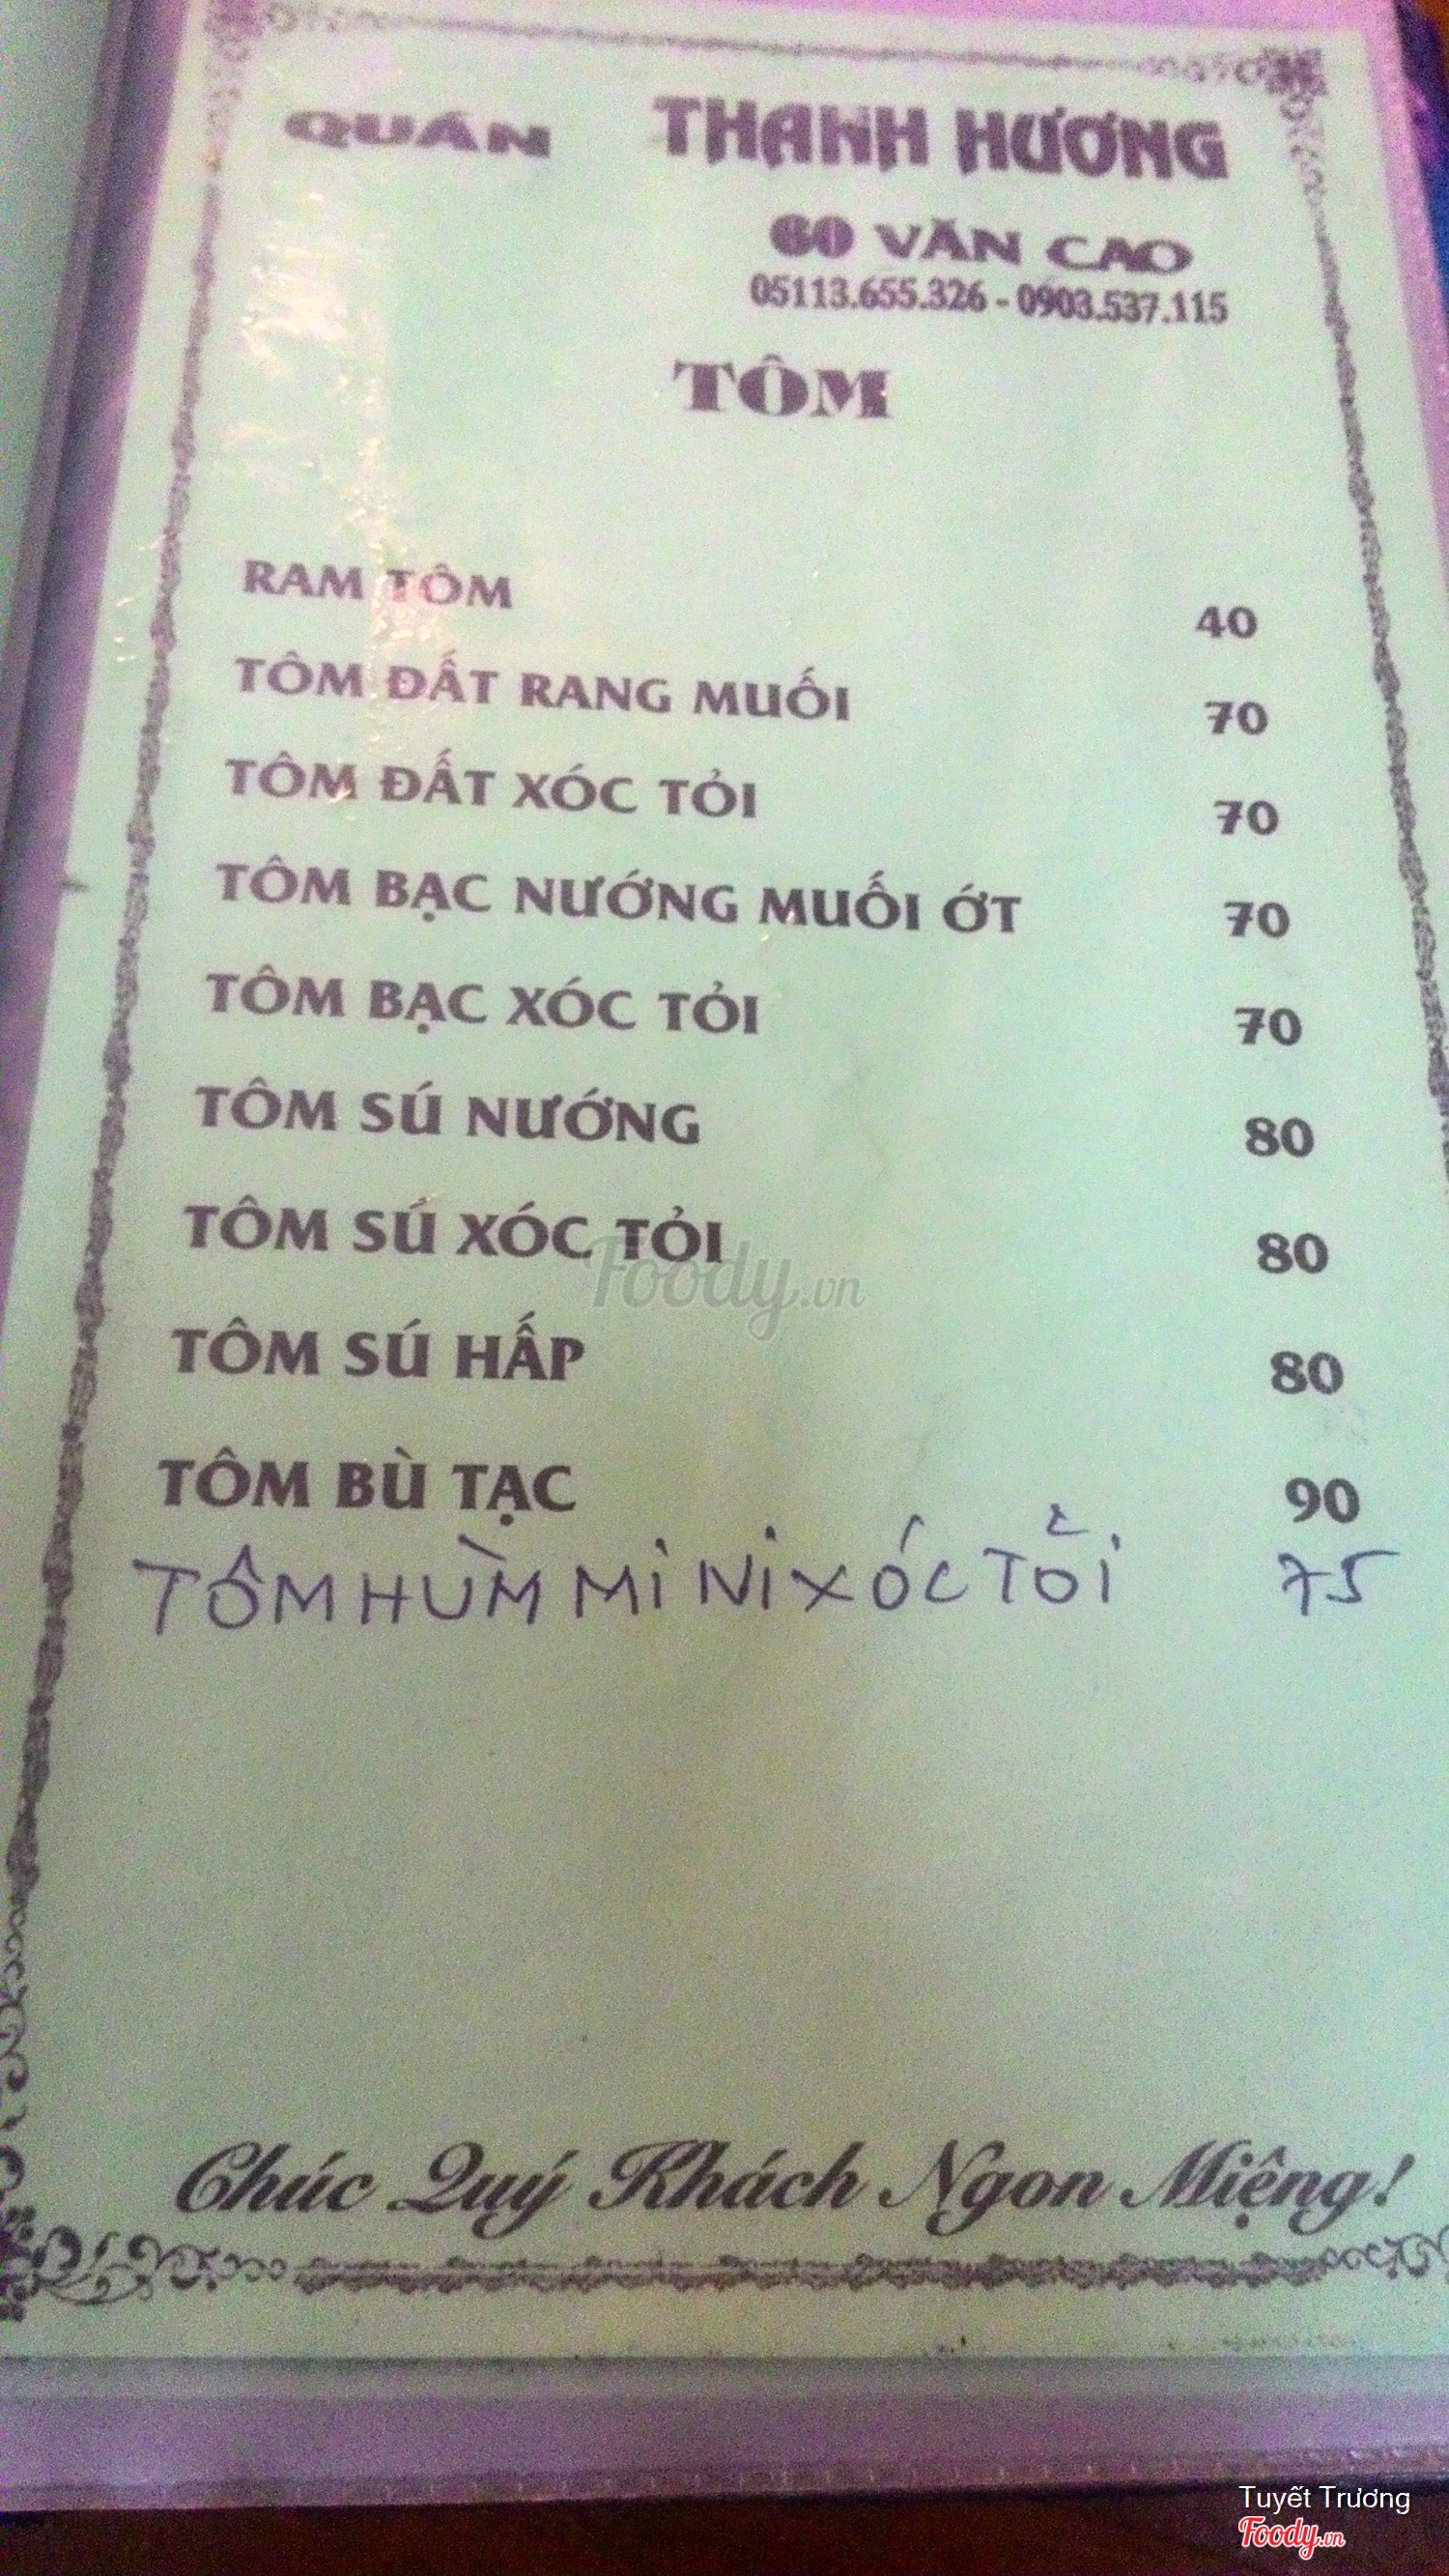 QUÁN THANH HƯƠNG
60 VĂN CAO
05113.655.326 - 0903.537.115
TÔM
RAM TÔM 40
TÔM ĐẤT RANG MUỐI 70
TÔM ĐẤT XÓC TỎI 70
TÔM BẠC NƯỚNG MUỐI ỚT 70
TÔM BẠC XÓC TỎI 70
TÔM SÚ NƯỚNG 80
TÔM SÚ XÓC TỎI 80
Foody.vn
TÔM SÚ HẤP 80
TÔM BÙ TẠC 90
TÔM HÙM MI NI XÓC TỎI 75
Chúc Quý Khách Ngon Miệng!
Tuyết Trương
Foody.vn